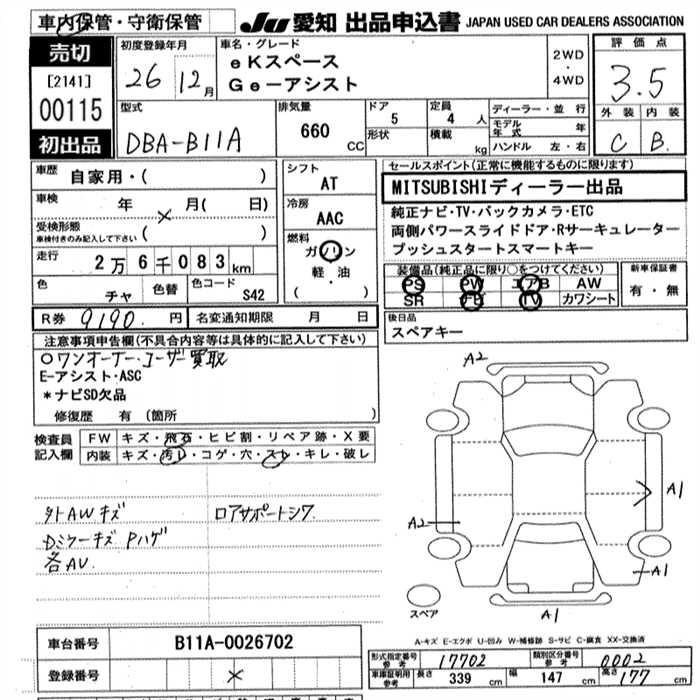 車内保管・守衛保管
Ju 愛知 出品申込書 JAPAN USED CAR DEALERS ASSOCIATION
売切
[2141]
00115
初出品
初度登録年月
26 12月
車名・グレード
eKスペース
Ge-アシスト
2WD
・
4WD
評価点
3.5
外装 内装
C B.
型式
DBA-B11A
排気量
660 CC
ドア
5
形状
定員
4 人
積載
kg
ディーラー・並行
モデル年式 年
ハンドル 左・右
車歴
自家用・( )
車検
年 × 月( 日)
受検形態
車検付きのみ記入して下さい ( )
走行
2万6千083km
色
チャ
色替
色コード
S42
シフト
AT
冷房
AAC
燃料
ガソリン
軽・油
( )
セールスポイント(正常に機能するものに限ります)
MITSUBISHIディーラー出品
純正ナビ・TV・バックカメラ・ETC
両側パワースライドドア・Rサーキュレーター
プッシュスタートスマートキー
装備品(純正品に限り○をつけてください)
PS PW エアB AW
SR ナビ TV カワシート
新車保証書
有・無
R券 9190. 円 名変通知期限 月 日
後日品
スペアキー
注意事項申告欄(不具合内容等は具体的に記入して下さい)
○ワンオーナー.ユーザー買取
E-アシスト・ASC
*ナビSD欠品
修復歴 有 (箇所 )
検査員記入欄
FW キズ・飛石・ヒビ割・リペア跡・X要
内装 キズ・汚レ・コゲ・穴・スレ・キレ・破レ
外AWキズ
ロアサポートシワ
Dミラーキズ Pハゲ
各AU.
A2
A1
A2
A1
A1
スペア
A-キズ E-エクボ U-凹み W-補修跡 S-サビ C-腐食 XX-交換済
車台番号 B11A-0026702
登録番号 ×
形式指定番号 参考 17702
類別区分番号 参考 0002
車庫証明用 参考 長さ 339 cm 幅 147 cm 高さ 177 cm